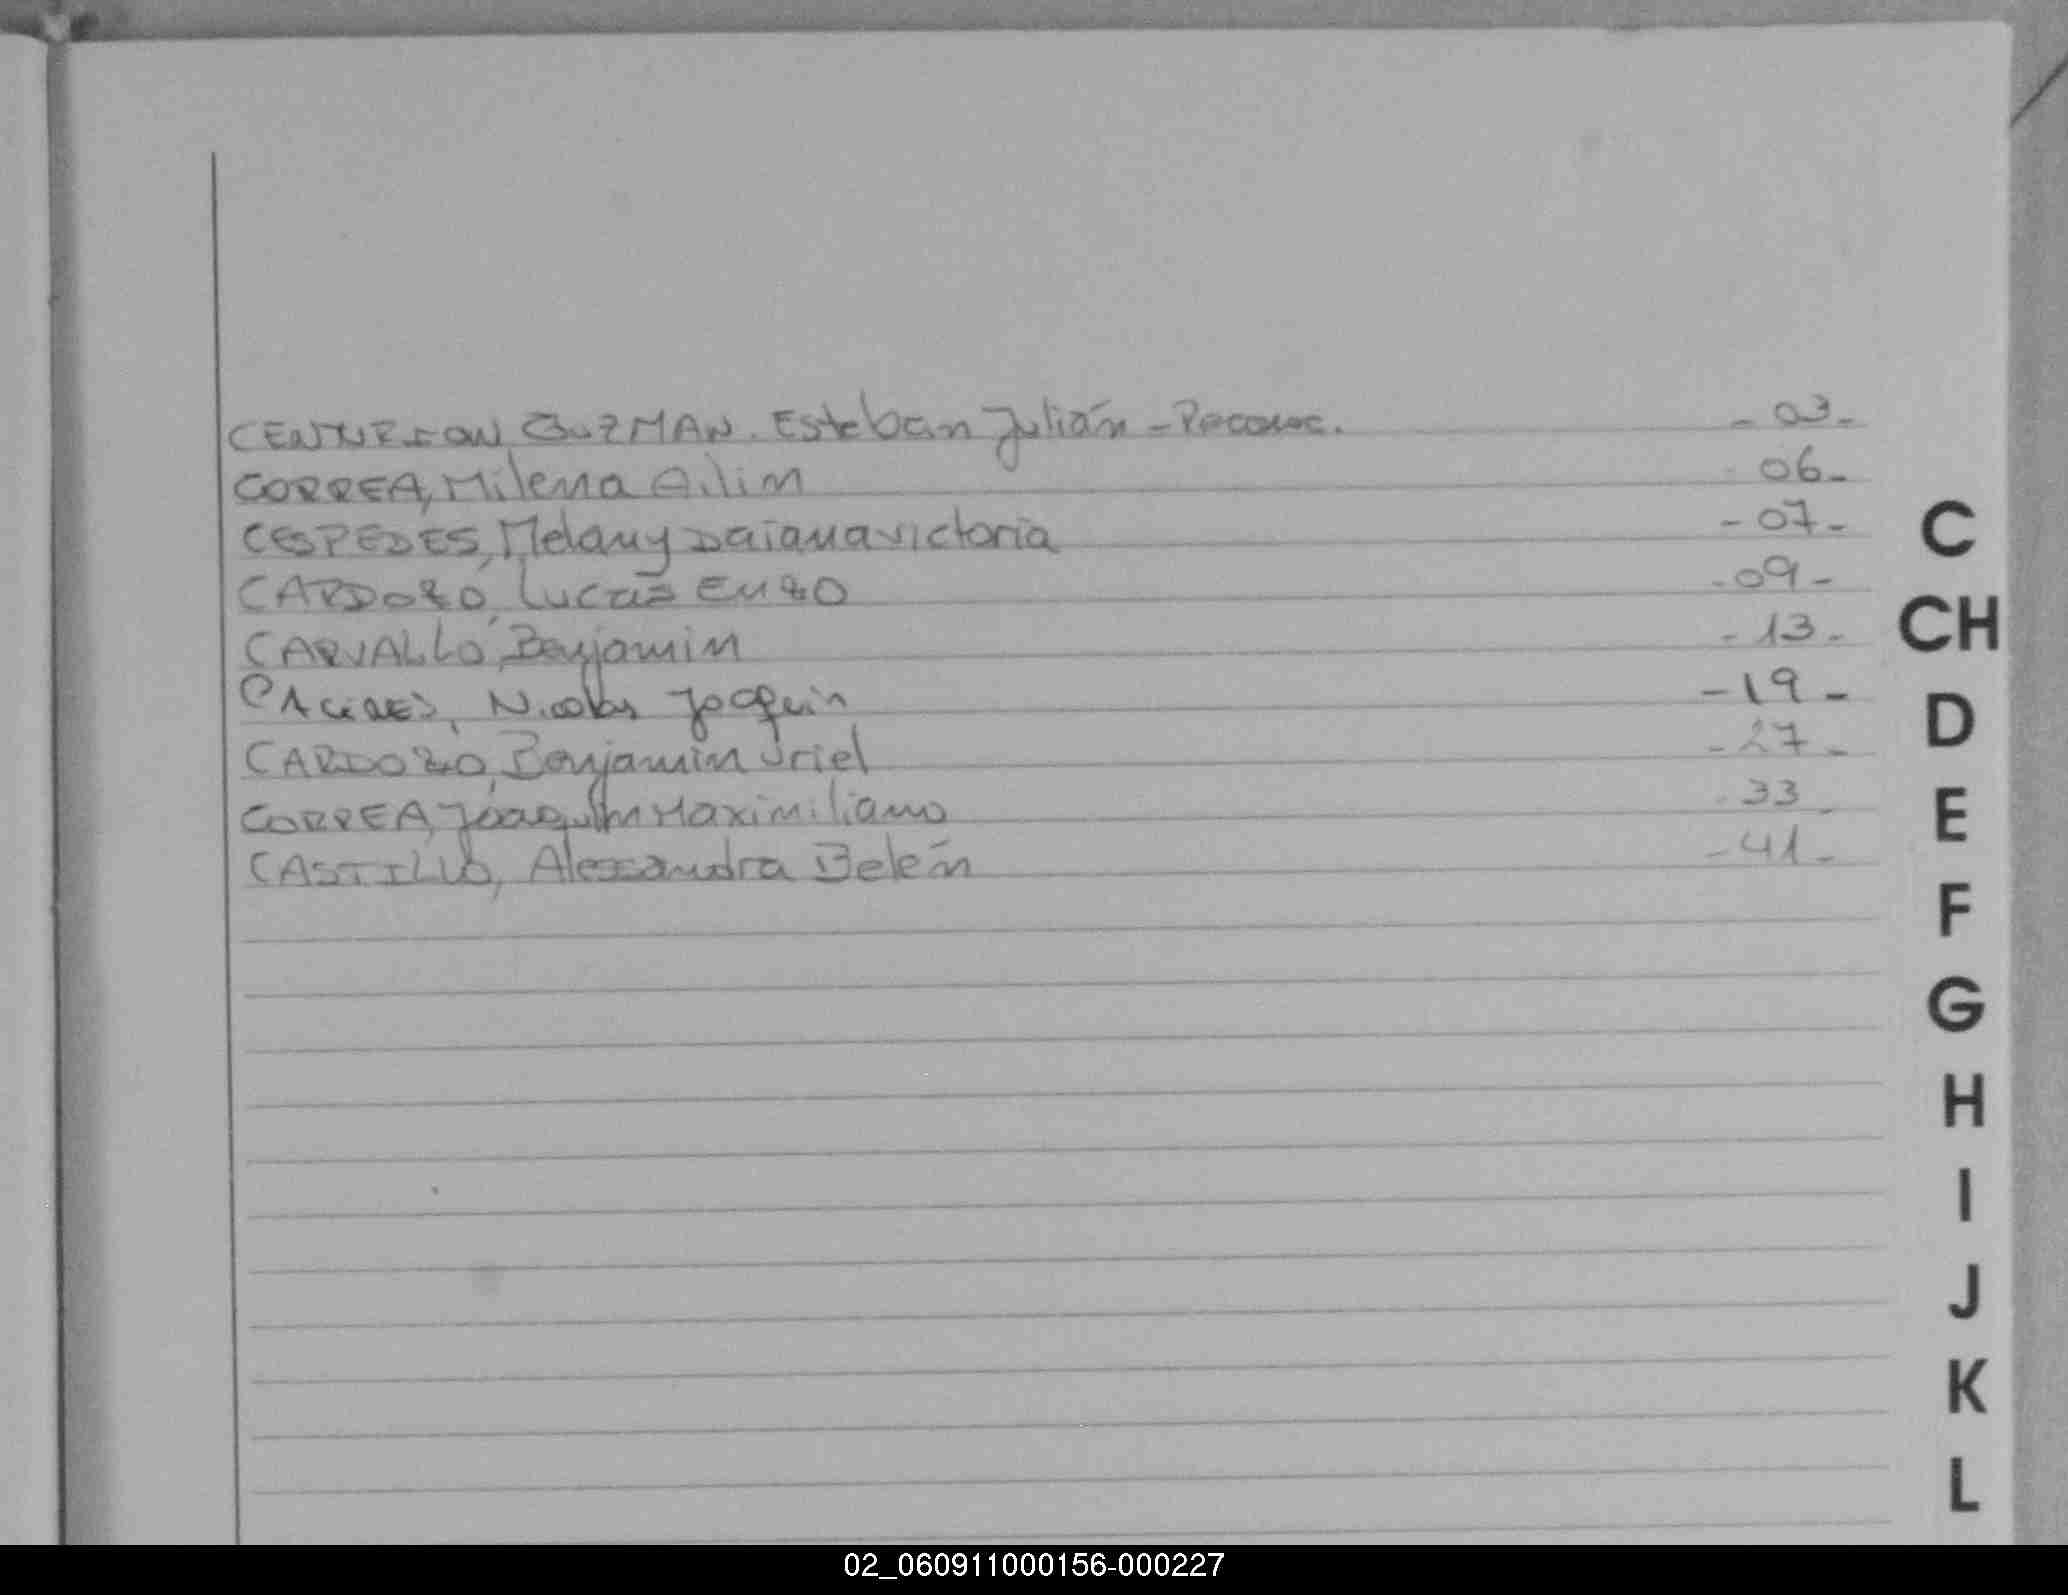 CENTURION GUZMAN. Esteban Julián - Reconoc. - 03 -
CORREA, Milena Ailin 06 -
CESPEDES, Melany Daiana Victoria - 07 -
CARDOZO, Lucas Enzo - 09 -
CARVALLO, Benjamin - 13 -
CACERES, Nicolas Joaquin - 19 -
CARDOZO, Benjamin Uriel - 27 -
CORREA, Joaquin Maximiliano - 33 -
CASTILLO, Alessandra Belén - 41 -
C
CH
D
E
F
G
H
I
J
K
L
02_060911000156-000227